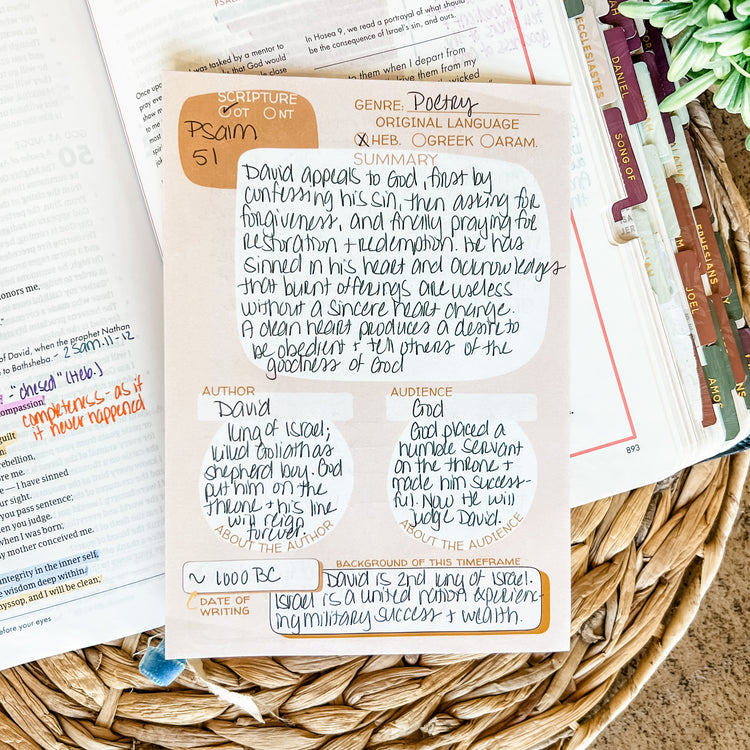 In Hosea 9, we read a portrayal of what should
be the consequence of Israel's sin, and ours.
was tasked by a mentor to
that God would
close
to them when I depart from
drive them from my
wicked
Once upon
pray every
ECCLESIASTES
DANIEL
SONG OF
JOEL
EPHESIANS
AMOS
893
SCRIPTURE
OT NT
Psalm
51
GENRE: Poetry
ORIGINAL LANGUAGE
X HEB. GREEK ARAM.
SUMMARY
David appeals to God, first by
confessing his sin, then asking for
forgiveness, and finally praying for
restoration + redemption. He has
sinned in his heart and acknowledges
that burnt offerings are useless
without a sincere heart change.
A clean heart produces a desire to
be obedient + tell others of the
goodness of God
AUTHOR
David
king of Israel;
killed Goliath as
shepherd boy. God
put him on the
throne + his line
will reign
forever.
ABOUT THE AUTHOR
AUDIENCE
God
God placed a
humble servant
on the throne +
made him success-
ful. Now He will
judge David.
ABOUT THE AUDIENCE
~ 1000 BC
DATE OF
WRITING
BACKGROUND OF THIS TIMEFRAME
David is 2nd king of Israel.
Israel is a united nation experienc-
ing military success + wealth.
onors me,
of David, when the prophet Nathan
to Bathsheba. - 2 Sam. 11-12
"chesed" (Heb.)
compassion
completeness - as if
it never happened
guilt
rebellion,
ore me.
— I have sinned
ur sight.
you pass sentence;
hen you judge.
when I was born;
y mother conceived me.
integrity in the inner self,
e wisdom deep within.
hyssop, and I will be clean;
efore your eyes